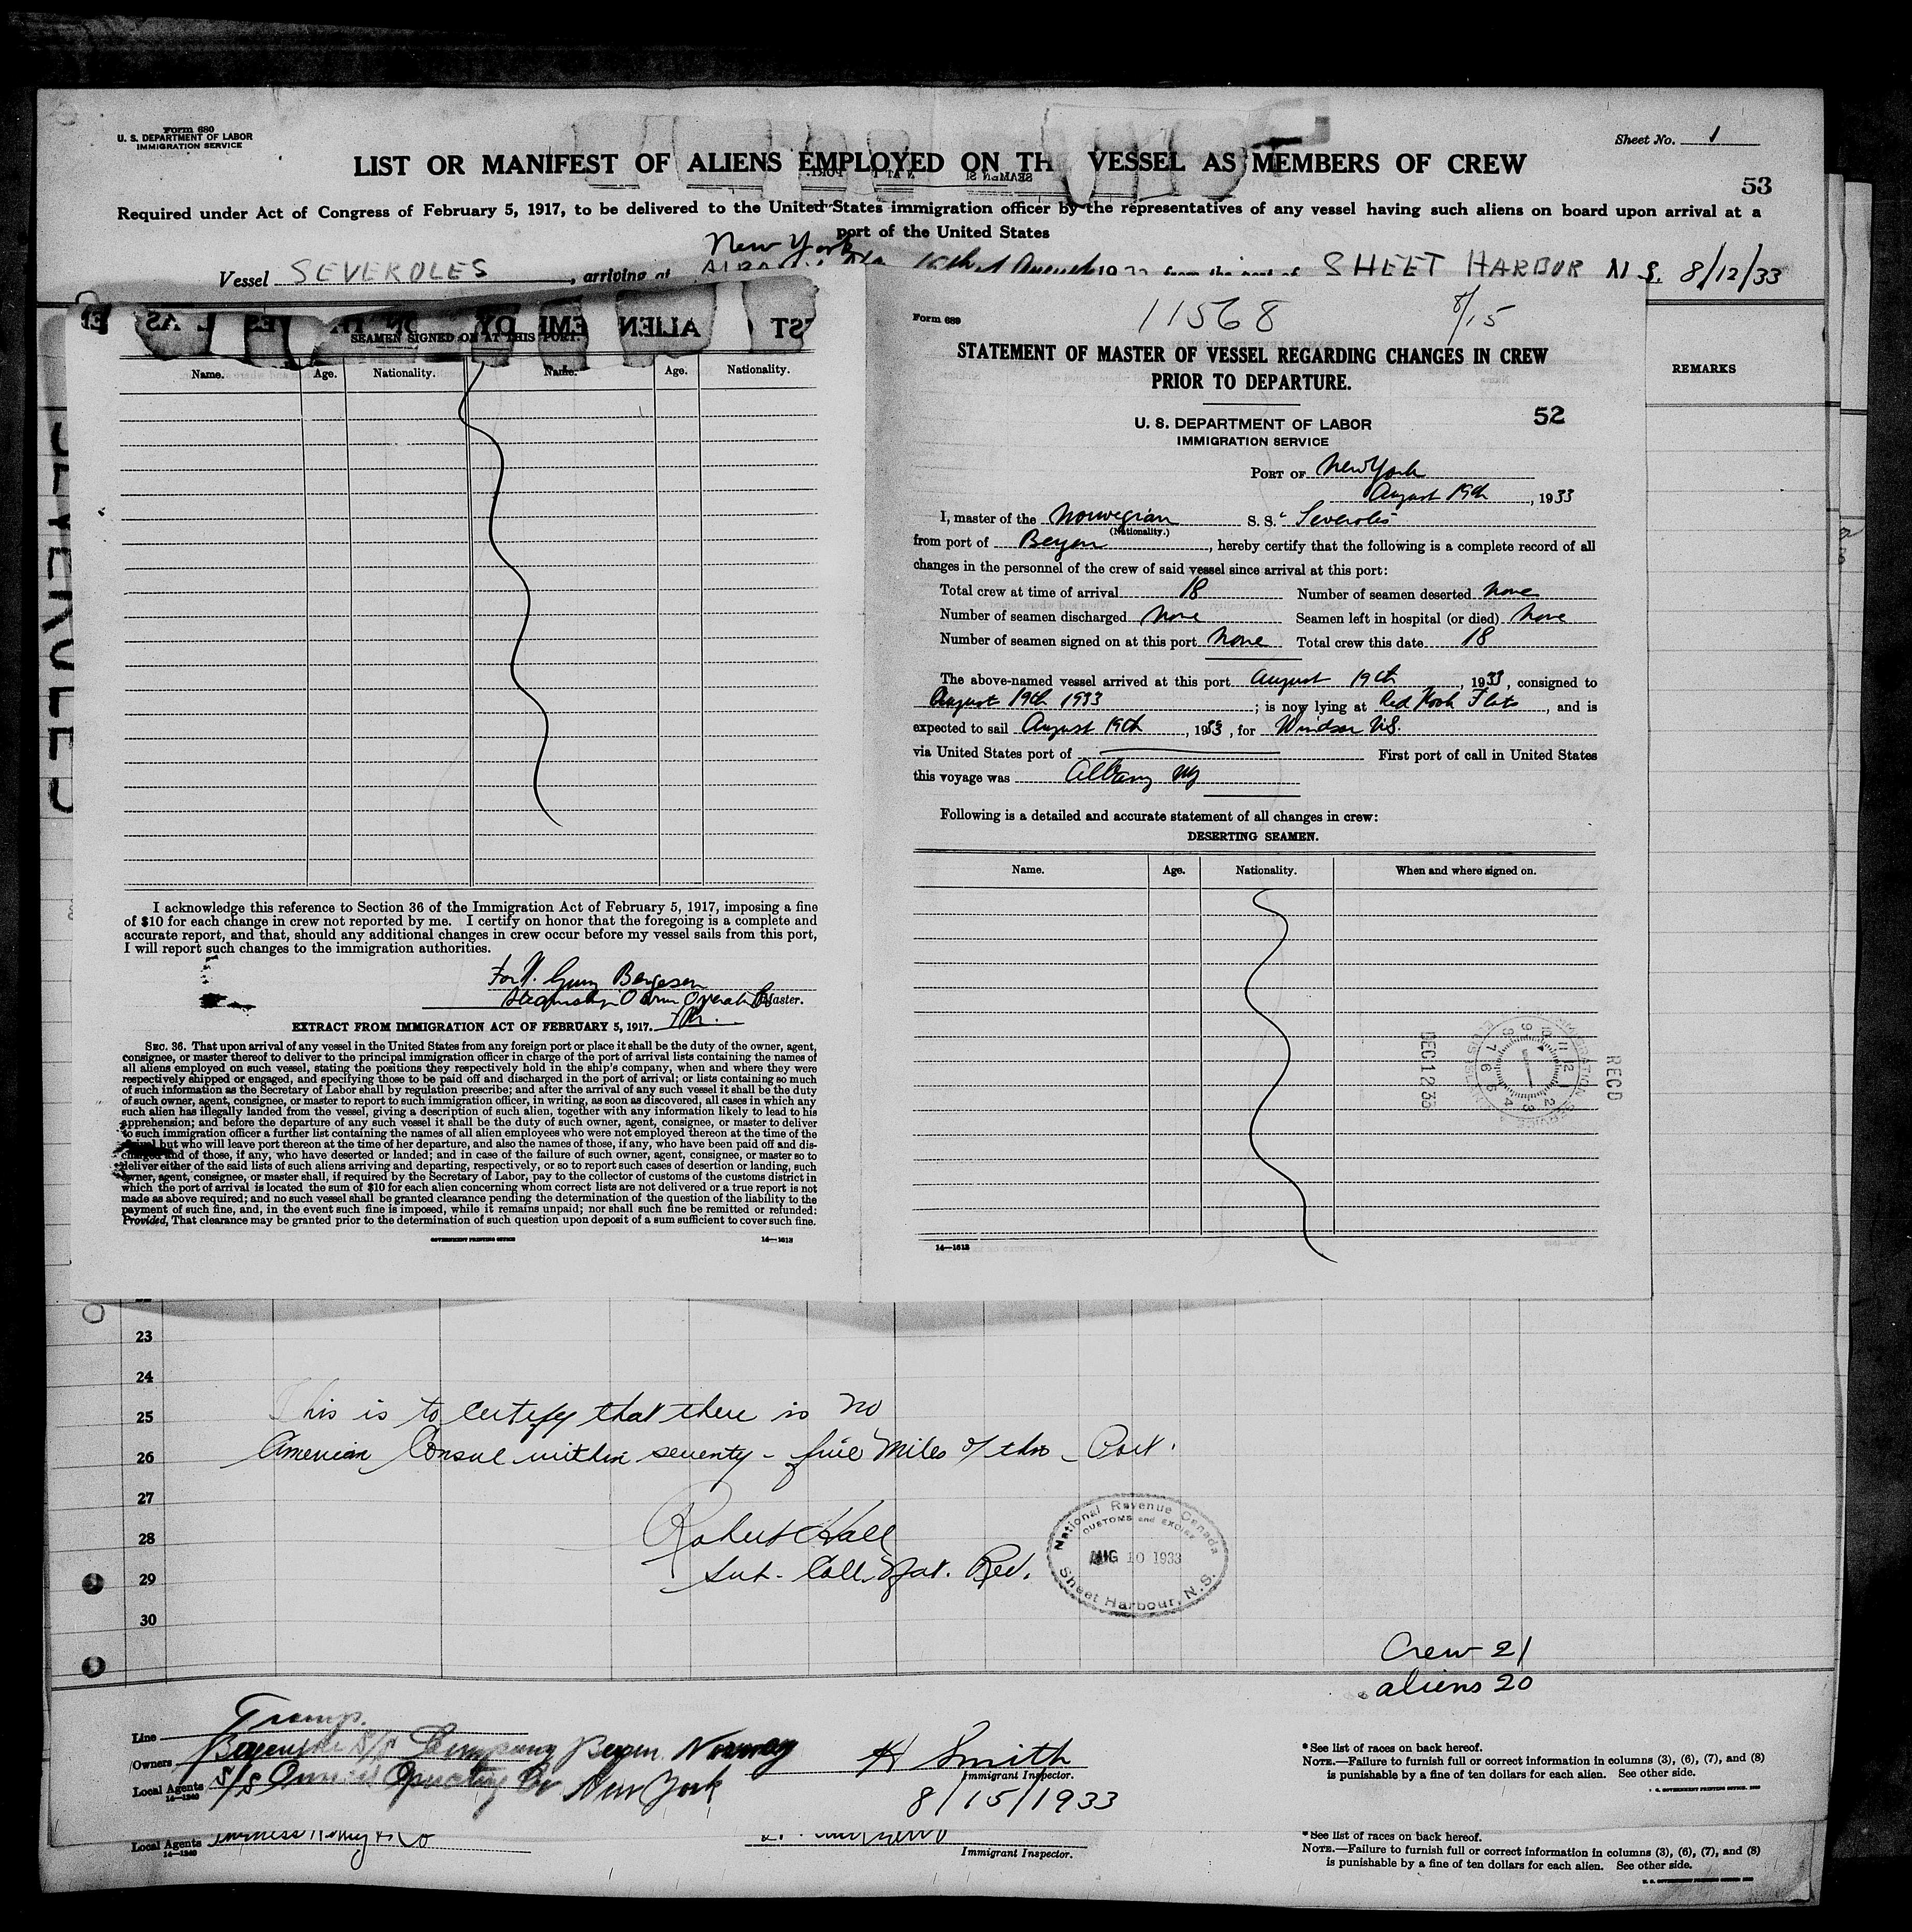 Form 680
U. S. DEPARTMENT OF LABOR
IMMIGRATION SERVICE
Sheet No. 1
LIST OR MANIFEST OF ALIENS EMPLOYED ON TH VESSEL AS MEMBERS OF CREW
53
Required under Act of Congress of February 5, 1917, to be delivered to the United States immigration officer by the representatives of any vessel having such aliens on board upon arrival at a
port of the United States
New York
Vessel SEVEROLES, arriving at 15th August 19 from the port of SHEET HARBOR N.S. 8/12/33
REMARKS
SEAMEN SIGNED ON AT THIS PORT.
Name. Age. Nationality. Name. Age. Nationality.
I acknowledge this reference to Section 36 of the Immigration Act of February 5, 1917, imposing a fine
of $10 for each change in crew not reported by me. I certify on honor that the foregoing is a complete and
accurate report, and that, should any additional changes in crew occur before my vessel sails from this port,
I will report such changes to the immigration authorities.
Bergesen
Master.
EXTRACT FROM IMMIGRATION ACT OF FEBRUARY 5, 1917.
SEC. 36. That upon arrival of any vessel in the United States from any foreign port or place it shall be the duty of the owner, agent,
consignee, or master thereof to deliver to the principal immigration officer in charge of the port of arrival lists containing the names of
all aliens employed on such vessel, stating the positions they respectively hold in the ship's company, when and where they were
respectively shipped or engaged, and specifying those to be paid off and discharged in the port of arrival; or lists containing so much
of such information as the Secretary of Labor shall by regulation prescribe; and after the arrival of any such vessel it shall be the duty
of such owner, agent, consignee, or master to report to such immigration officer, in writing, as soon as discovered, all cases in which any
such alien has illegally landed from the vessel, giving a description of such alien, together with any information likely to lead to his
apprehension; and before the departure of any such vessel it shall be the duty of such owner, agent, consignee, or master to deliver
to such immigration officer a further list containing the names of all alien employees who were not employed thereon at the time of the
arrival but who will leave port thereon at the time of her departure, and also the names of those, if any, who have been paid off and dis-
charged and of those, if any, who have deserted or landed; and in case of the failure of such owner, agent, consignee, or master so to
deliver either of the said lists of such aliens arriving and departing, respectively, or so to report such cases of desertion or landing, such
owner, agent, consignee, or master shall, if required by the Secretary of Labor, pay to the collector of customs of the customs district in
which the port of arrival is located the sum of $10 for each alien concerning whom correct lists are not delivered or a true report is not
made as above required; and no such vessel shall be granted clearance pending the determination of the question of the liability to the
payment of such fine, and, in the event such fine is imposed, while it remains unpaid; nor shall such fine be remitted or refunded:
Provided, That clearance may be granted prior to the determination of such question upon deposit of a sum sufficient to cover such fine.
GOVERNMENT PRINTING OFFICE
14—1613
Form 689
11568 8/15
STATEMENT OF MASTER OF VESSEL REGARDING CHANGES IN CREW
PRIOR TO DEPARTURE.
52
U. S. DEPARTMENT OF LABOR
IMMIGRATION SERVICE
PORT OF New York
August 19th, 1933
I, master of the Norwegian S. S. Severoles
(Nationality.)
from port of Bergen, hereby certify that the following is a complete record of all
changes in the personnel of the crew of said vessel since arrival at this port:
Total crew at time of arrival 18 Number of seamen deserted none
Number of seamen discharged none Seamen left in hospital (or died) none
Number of seamen signed on at this port none Total crew this date 18
The above-named vessel arrived at this port August 19th, 1933, consigned to
August 19th 1933; is now lying at Red Hook Flats, and is
expected to sail August 19th, 1933, for Windsor N.S.
via United States port of First port of call in United States
this voyage was Albany NY
Following is a detailed and accurate statement of all changes in crew:
DESERTING SEAMEN.
Name. Age. Nationality. When and where signed on.
REC'D
DEC 12 33
14—1613
23
24
25 This is to certify that there is no
26 American Consul within seventy-five miles of this Port.
27
28 Robert Hall
29 Sub. Coll. Nat. Rev.
30
National Revenue Canada
CUSTOMS and EXCISE
AUG 10 1933
Sheet Harbour, N.S.
Crew 21
aliens 20
Line Tramp.
Owners S/S Company Bergen Norway
Local Agents S/S Operating Co New York
14—1240
H Smith
Immigrant Inspector.
8/15/1933
* See list of races on back hereof.
NOTE.—Failure to furnish full or correct information in columns (3), (6), (7), and (8)
is punishable by a fine of ten dollars for each alien. See other side.
Local Agents & Co
14—1240
Immigrant Inspector.
* See list of races on back hereof.
NOTE.—Failure to furnish full or correct information in columns (3), (6), (7), and (8)
is punishable by a fine of ten dollars for each alien. See other side.